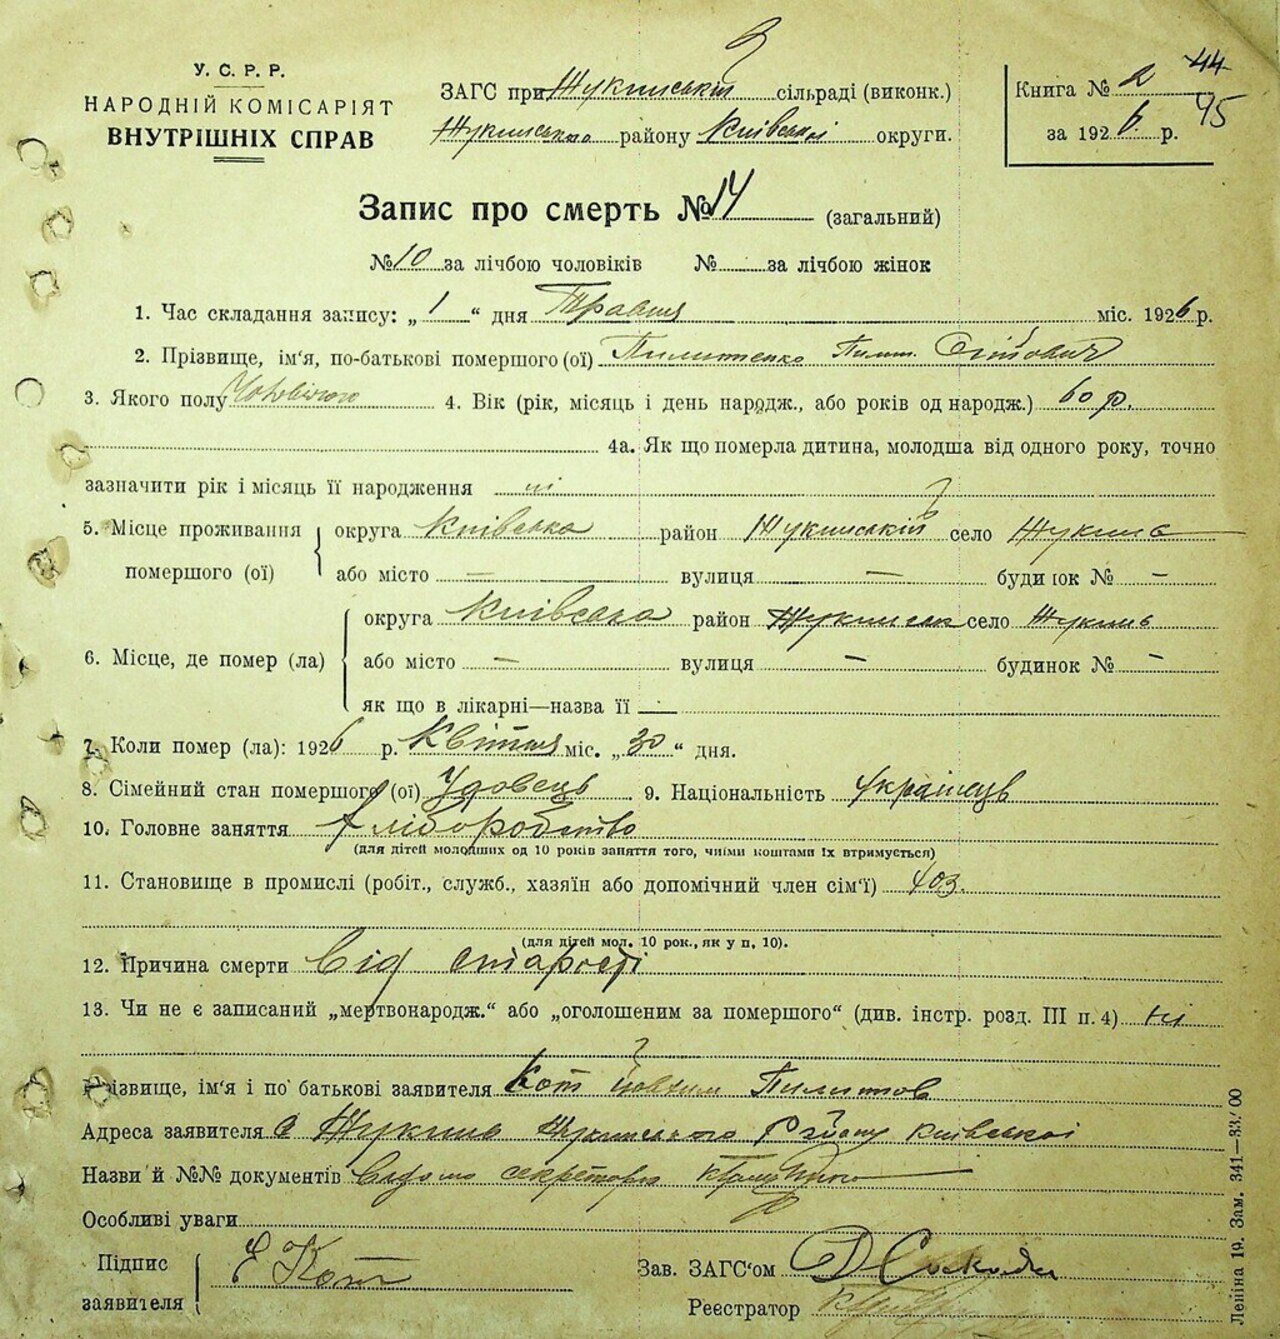 У. С. Р. Р.
НАРОДНІЙ КОМІСАРІЯТ
ВНУТРІШНІХ СПРАВ
ЗАГС при Жукинській сільраді (виконк.)
Жукинського району Київської округи.
Книга № 2 44
45
за 1926 р.
Запис про смерть № 14 (загальний)
№ 10 за лічбою чоловіків № за лічбою жінок
1. Час складання запису: „ 1 “ дня Травня міс. 1926 р.
2. Прізвище, ім'я, по-батькові помершого (ої) Пилипенко Пилип.
3. Якого полу Чоловічого 4. Вік (рік, місяць і день народж., або років од народж.) 60 р.
4а. Як що померла дитина, молодша від одного року, точно
зазначити рік і місяць її народження ні
5. Місце проживання помершого (ої) округа Київська район Жукинській село Жукинь
або місто — вулиця — будинок № —
6. Місце, де помер (ла) округа Київська район Жукинськ село Жукинь
або місто — вулиця — будинок № —
як що в лікарні—назва її —
7. Коли помер (ла): 1926 р. Квітня міс. „ 30 “ дня.
8. Сімейний стан помершого (ої) Удовець 9. Національність Українець
10. Головне заняття Хліборобство
(для дітей молодших од 10 років заняття того, чиїми коштами їх втримується)
11. Становище в промислі (робіт., служб., хазяїн або допомічний член сім'ї) хоз.
(для дітей мол. 10 рок., як у п. 10).
12. Причина смерти Від старості
13. Чи не є записаний „мертвонародж.“ або „оголошеним за помершого“ (див. інстр. розд. III п. 4) ні
Прізвище, ім'я і по батькові заявителя Кот Пилипов
Адреса заявителя С Жукинь Жукинського Району Київської
Назви й №№ документів Відомо секретарю
Особливі уваги
Підпис заявителя Є Кот
Зав. ЗАГС'ом
Реєстратор
Леніна 19. Зам. 341—33/00